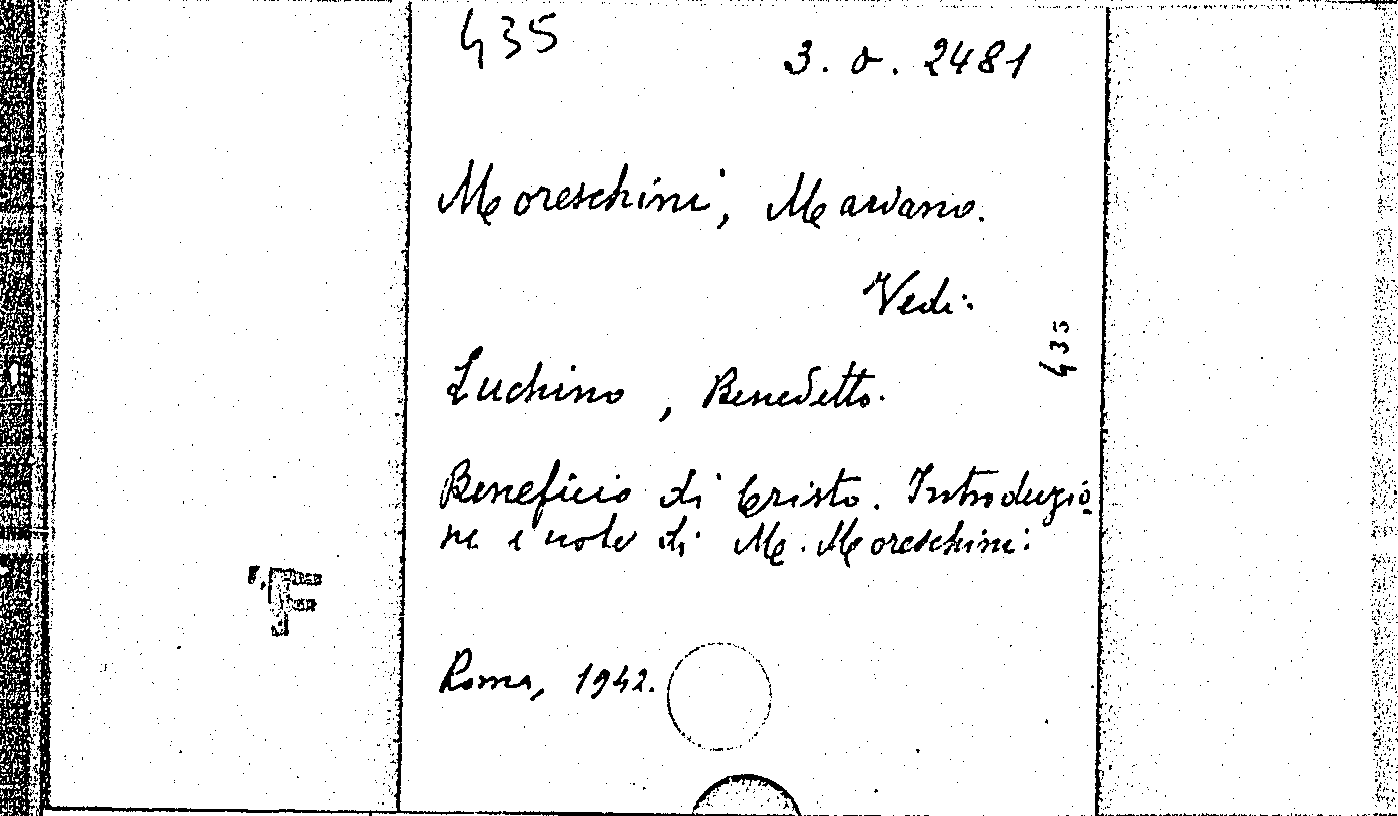 435
3. o. 2481
Moreschini, Mariano.
Vedi:
435
Luchino, Benedetto.
Beneficio di Cristo. Introduzio-
ne e note di M. Moreschini.
F
Roma, 1942.